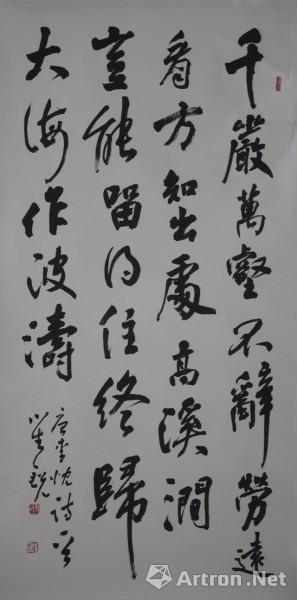 千巖萬壑不辭勞遠
看方知出處高溪澗
豈能留得住終歸
大海作波濤
唐李忱詩
Artron.Net